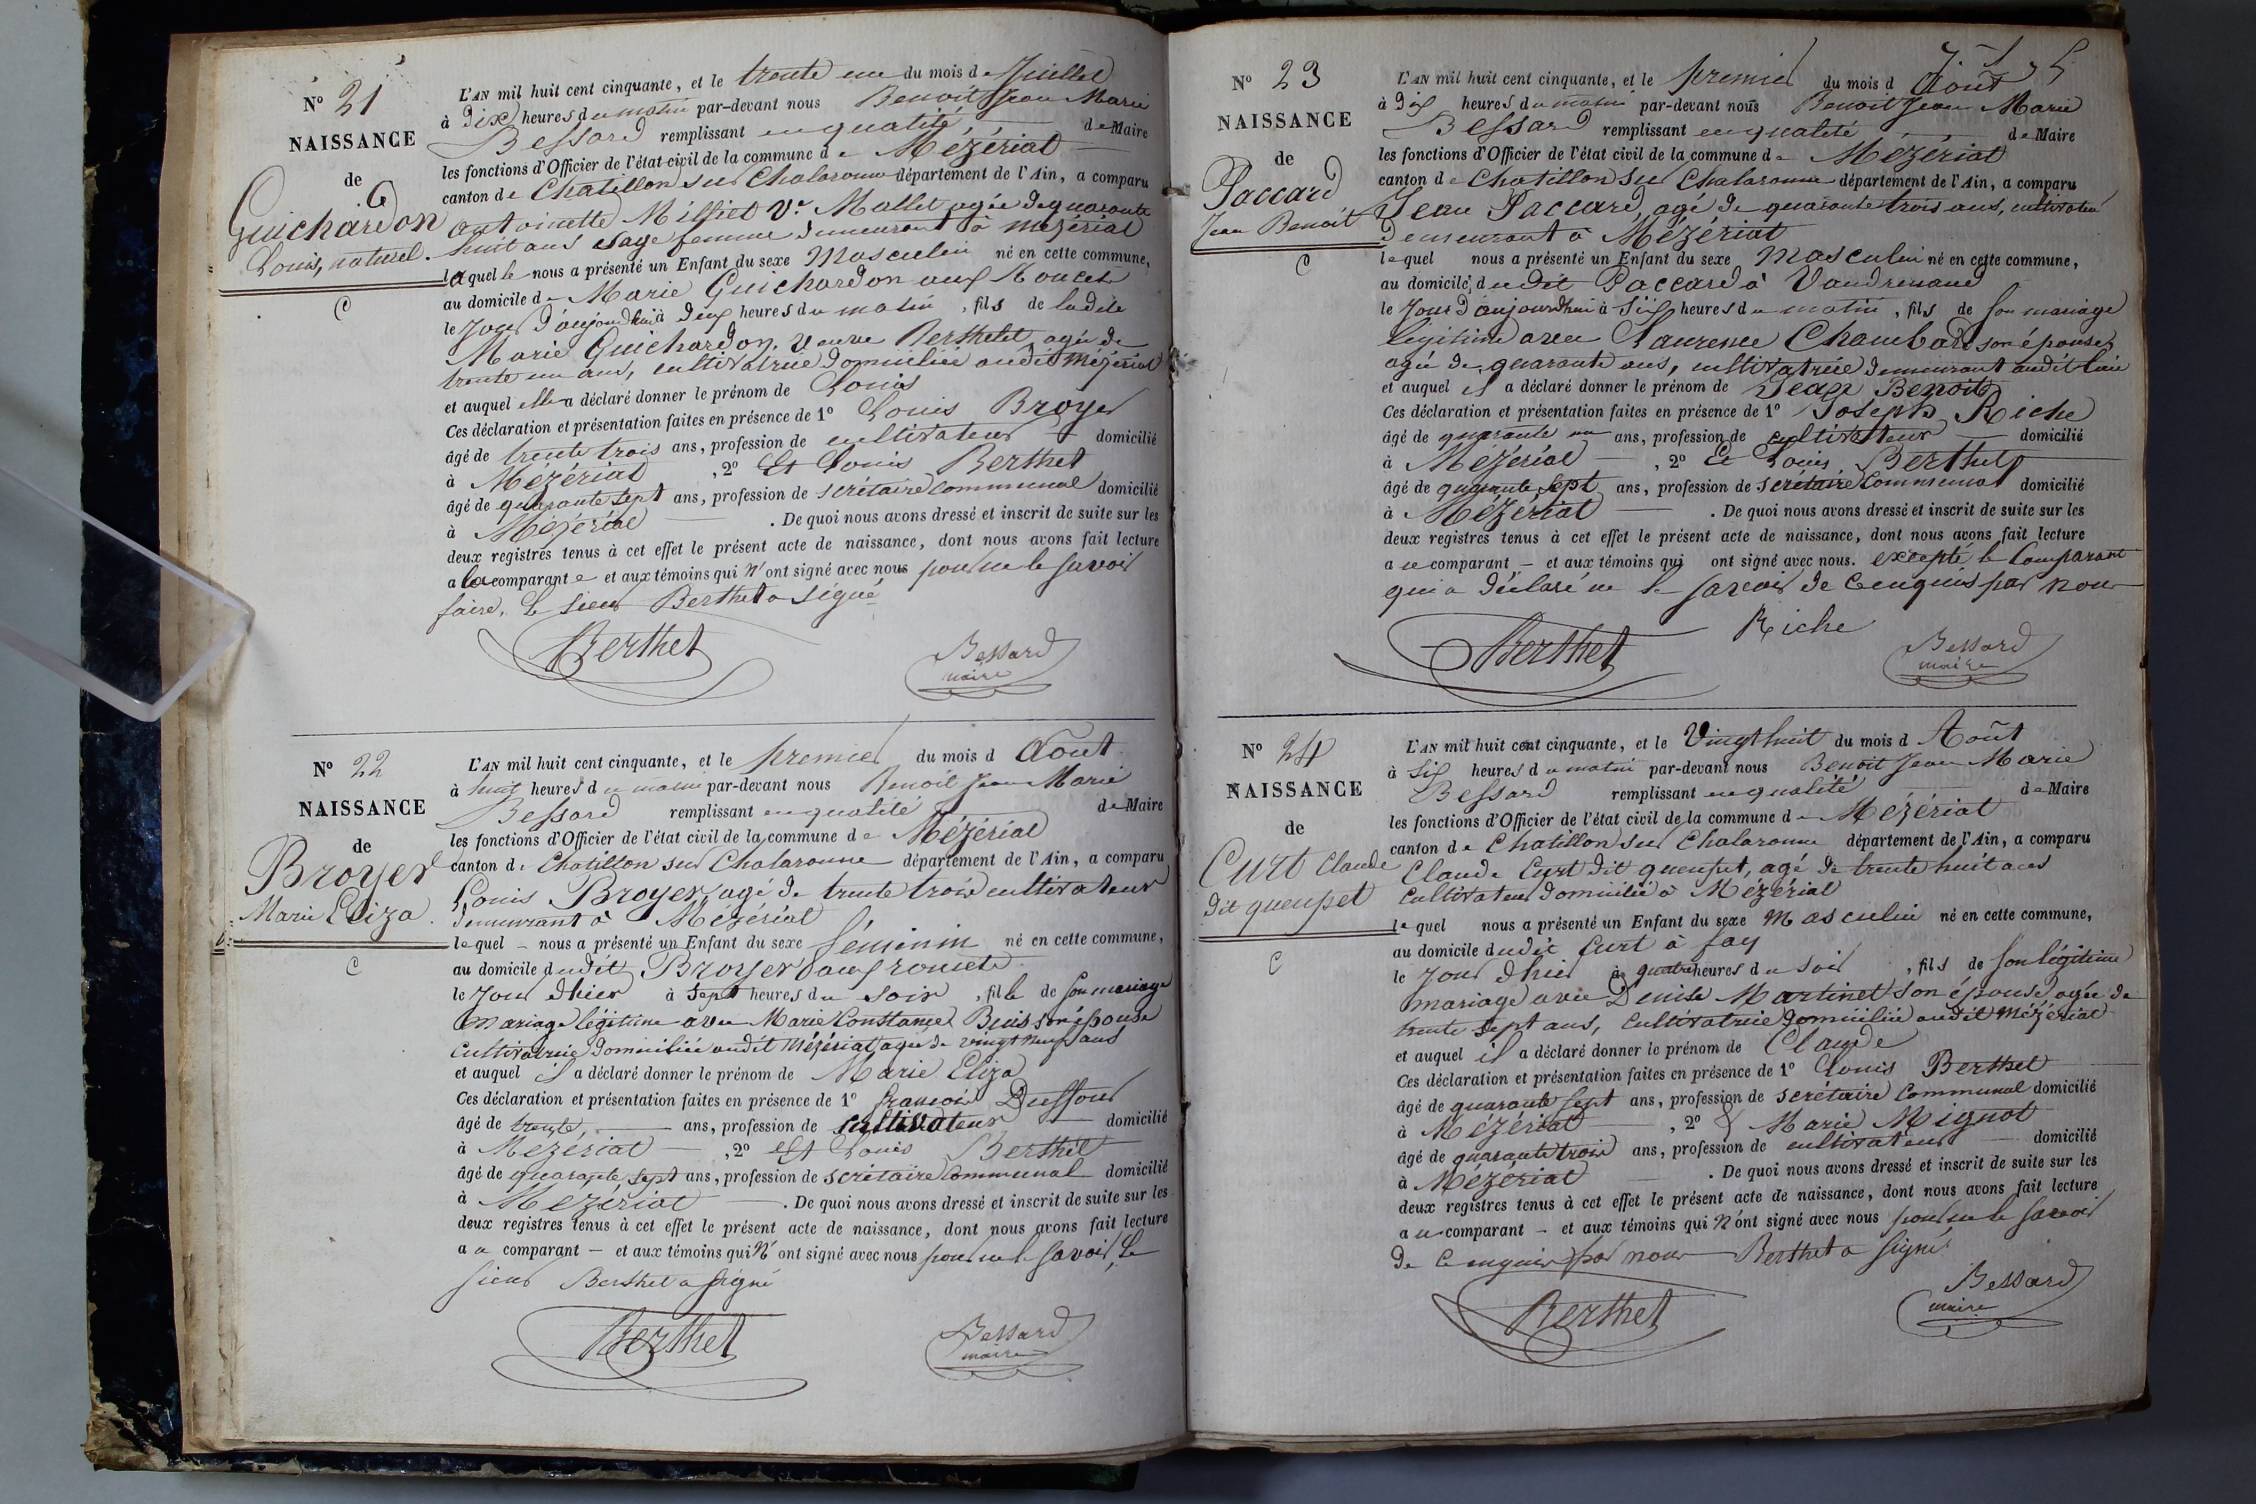 N° 21
NAISSANCE
de
G
Guichardon
Louis, naturel.
C
L'AN mil huit cent cinquante, et le trente un du mois de Juillet
à Dix heures du matin par-devant nous Benoit Jean Marie
Bessard remplissant en qualité de Maire
les fonctions d'Officier de l'état civil de la commune de Mézériat
canton de Chatillon sur Chalaronne département de l'Ain, a comparu
antoinette Milliet Ve Mallet agée de quarante
huit ans sage femme demeurant à mézériat
laquelle nous a présenté un Enfant du sexe Masculin né en cette commune,
au domicile de Marie Guichardon aux
le Jour d'aujourdhui à deux heures du matin, fils de ladite
Marie Guichardon, veuve Berthelet agée de
trente un ans, cultivatrice domiciliée audit Mézériat
et auquel elle a déclaré donner le prénom de Louis
Ces déclaration et présentation faites en présence de 1° Louis Broyer
âgé de trente trois ans, profession de cultivateur domicilié
à Mézériat , 2° Et Louis Berthet
âgé de quarante sept ans, profession de secrétaire communal domicilié
à Mézériat . De quoi nous avons dressé et inscrit de suite sur les
deux registres tenus à cet effet le présent acte de naissance, dont nous avons fait lecture
a la comparante et aux témoins qui n'ont signé avec nous pour ne le savoir
faire. Le sieur Berthet a signé
Berthet
Bessard
maire
N° 22
NAISSANCE
de
Broyer
Marie Eliza
C
L'AN mil huit cent cinquante, et le premier du mois d Aout
à huit heures du matin par-devant nous Benoit Jean Marie
Bessard remplissant en qualité de Maire
les fonctions d'Officier de l'état civil de la commune de Mézériat
canton de Chatillon sur Chalaronne département de l'Ain, a comparu
Louis Broyer, agé de trente trois cultivateur
demeurant à Mézériat
lequel - nous a présenté un Enfant du sexe féminin né en cette commune,
au domicile dudit Broyer aux
le Jour d'hier à sept heures du soir, fille de son mariage
mariage légitime avec Marie Constance Buis son épouse
cultivatrice domiciliée audit Mézériat agée de vingt neuf ans
et auquel il a déclaré donner le prénom de Marie Eliza
Ces déclaration et présentation faites en présence de 1° françois Duffour
âgé de trente ans, profession de cultivateur domicilié
à Mézériat , 2° Et Louis Berthet
âgé de quarante sept ans, profession de secrétaire communal domicilié
à Mézériat . De quoi nous avons dressé et inscrit de suite sur les
deux registres tenus à cet effet le présent acte de naissance, dont nous avons fait lecture
a u comparant - et aux témoins qui n'ont signé avec nous pour ne le savoir, Le
sieur Berthet a signé
Berthet
Bessard
maire
N° 23
NAISSANCE
de
Paccard
Jean Benoit
C
L'AN mil huit cent cinquante, et le premier du mois d Août
à Dix heures du matin par-devant nous Benoit Jean Marie
Bessard remplissant en qualité de Maire
les fonctions d'Officier de l'état civil de la commune de Mézériat
canton de Chatillon sur Chalaronne département de l'Ain, a comparu
Jean Paccard, agé de quarante trois ans, cultivateur
demeurant à Mézériat
lequel nous a présenté un Enfant du sexe Masculin né en cette commune,
au domicile dudit Paccard à Vaudrenand
le Jour d'aujourdhui à Six heures du matin, fils de son mariage
légitime avec Laurence Chambard son épouse,
agée de quarante ans, cultivatrice demeurant audit lieu
et auquel il a déclaré donner le prénom de Jean Benoit
Ces déclaration et présentation faites en présence de 1° Joseph Riche
âgé de quarante un ans, profession de cultivateur domicilié
à Mézériat , 2° Et Louis Berthet
âgé de quarante sept ans, profession de secrétaire communal domicilié
à Mézériat . De quoi nous avons dressé et inscrit de suite sur les
deux registres tenus à cet effet le présent acte de naissance, dont nous avons fait lecture
a u comparant - et aux témoins qui ont signé avec nous. excepté le Comparant
qui a déclaré ne le savoir de ce enquis par nous
Riche
Berthet
Bessard
maire
N° 24
NAISSANCE
de
Curt Claude
dit queupet
C
L'AN mil huit cent cinquante, et le Vingt huit du mois d Août
à Six heures du matin par-devant nous Benoit Jean Marie
Bessard remplissant en qualité de Maire
les fonctions d'Officier de l'état civil de la commune de Mézériat
canton de Chatillon sur Chalaronne département de l'Ain, a comparu
Claude Curt dit queupet, agé de trente huit ans
cultivateur domicilié à Mézériat
lequel nous a présenté un Enfant du sexe Masculin né en cette commune,
au domicile dudit Curt à fay
le Jour d'hier à quatre heures du soir, fils de son légitime
mariage avec Denise Martinet son épouse agée de
trente sept ans, cultivatrice domiciliée audit Mézériat
et auquel il a déclaré donner le prénom de Claude
Ces déclaration et présentation faites en présence de 1° Louis Berthet
âgé de quarante sept ans, profession de secrétaire communal domicilié
à Mézériat , 2° & Marie Mignot
âgé de quarante trois ans, profession de cultivateur domicilié
à Mézériat . De quoi nous avons dressé et inscrit de suite sur les
deux registres tenus à cet effet le présent acte de naissance, dont nous avons fait lecture
a u comparant - et aux témoins qui n'ont signé avec nous pour ne le savoir
de ce enquis par nous Berthet a signé
Berthet
Bessard
maire